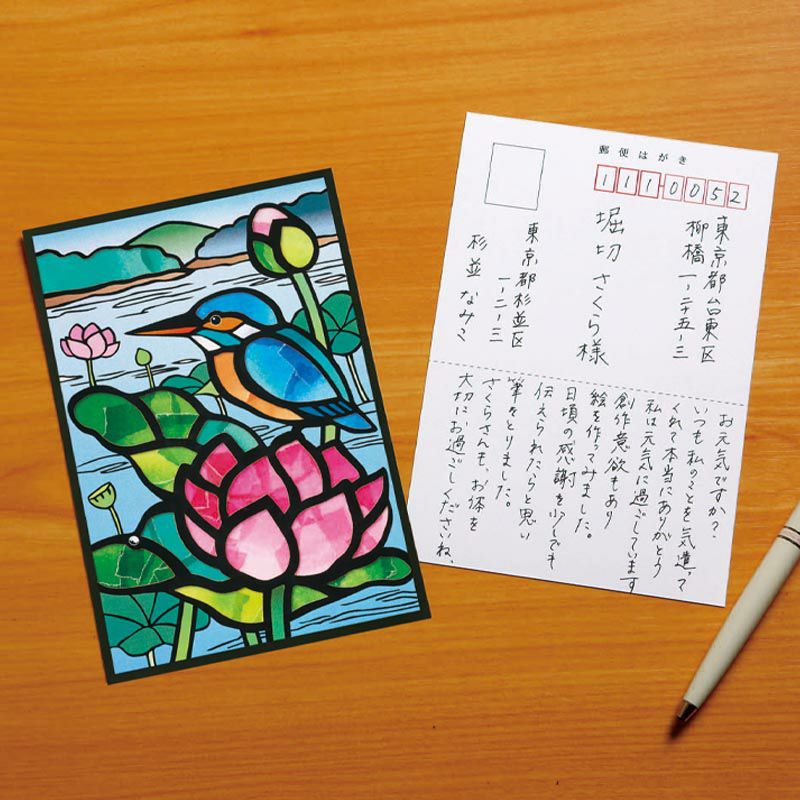 郵便はがき
1110052
東京都台東区
柳橋一-二十五-三
堀切さくら様
東京都杉並区
一-二-三
杉並なみこ
お元気ですか?
いつも私のことを気遣って
くれて本当にありがとう
私は元気に過ごしています
創作意欲もあり
絵を作ってみました。
日頃の感謝を少しでも
伝えられたらと思い
筆をとりました。
さくらさんも、お体を
大切にお過ごしくださいね。